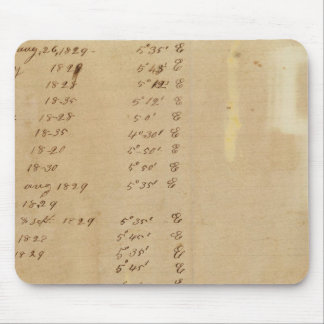 aug, 26, 1829 - 5° 35' E
y 1828 5° 45' E
1828 5° 12' E
18-35 5° 12' E
18-28 5° 0' E
18-35 4° 30' E
18-20 5°-50' E
18-30 5° 50' E
aug 1829 5° 35' E
1829
sept 1829 5° 35' E
1828 5° 40' E
1829 5° 35' E
5° 45' E